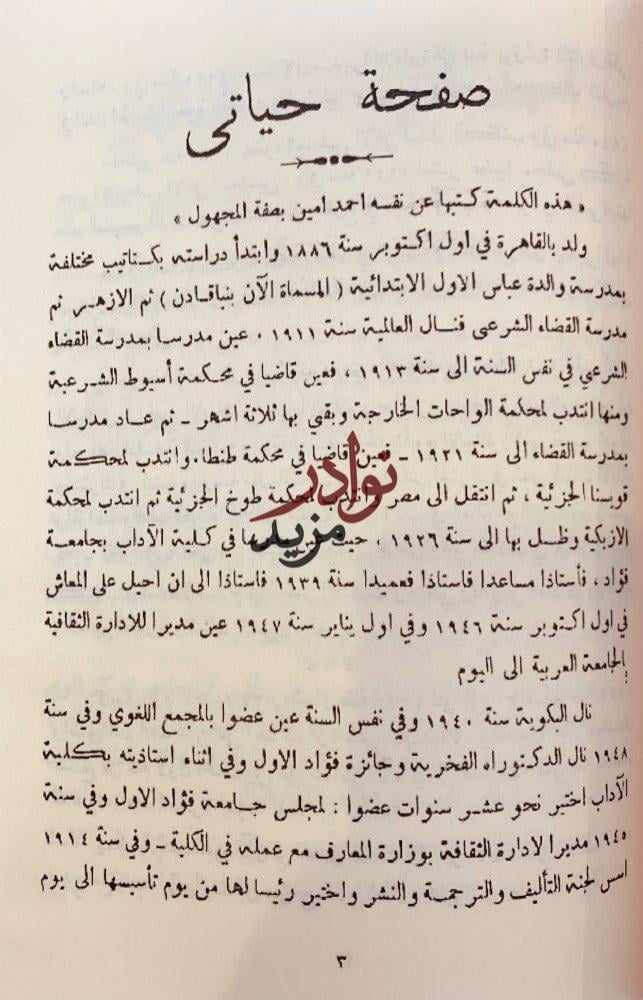 صفحة حياتى
« هذه الكلمة كتبها عن نفسه احمد امين بصفة المجهول »
ولد بالقاهرة في اول اكتوبر سنة ١٨٨٦ وابتدأ دراسته بكتاتيب مختلفة
بمدرسة والدة عباس الاول الابتدائية ( المسماة الآن بنياقادن ) ثم الازهر ثم
مدرسة القضاء الشرعى فنال العالمية سنة ١٩١١ . عين مدرسا بمدرسة القضاء
الشرعي في نفس السنة الى سنة ١٩١٣ ، فعين قاضيا في محكمة أسيوط الشرعية
ومنها انتدب لمحكمة الواحات الخارجة وبقي بها ثلاثة اشهر ـ ثم عاد مدرسا
بمدرسة القضاء الى سنة ١٩٢١ ـ فعين قاضيا في محكمة طنطا . وانتدب لمحكمة
قويسنا الجزئية ، ثم انتقل الى مصر وانتدب لمحكمة طوخ الجزئية ثم انتدب لمحكمة
الازبكية وظل بها الى سنة ١٩٢٦ ، حيث في كلية الآداب بجامعة
فؤاد ، فأستاذا مساعدا فاستاذا فعميدا سنة ١٩٣٩ فاستاذا الى ان احيل على المعاش
في اول اكتوبر سنة ١٩٤٦ وفي اول يناير سنة ١٩٤٧ عين مديرا للادارة الثقافية
بالجامعة العربية الى اليوم
نال البكوية سنة ١٩٤٠ وفي نفس السنة عين عضوا بالمجمع اللغوي وفي سنة
١٩٤٨ نال الدكتوراه الفخرية وجائزة فؤاد الاول وفي اثناء استاذيته بكلية
الآداب اختير نحو عشر سنوات عضوا : لمجلس جامعة فؤاد الاول وفي سنة
١٩٤٥ مديرا لادارة الثقافة بوزارة المعارف مع عمله في الكلية ـ وفي سنة ١٩١٤
اسس لجنة التأليف والترجمة والنشر واختير رئيسا لها من يوم تأسيسها الى يوم
٣
نوادر
مزيد